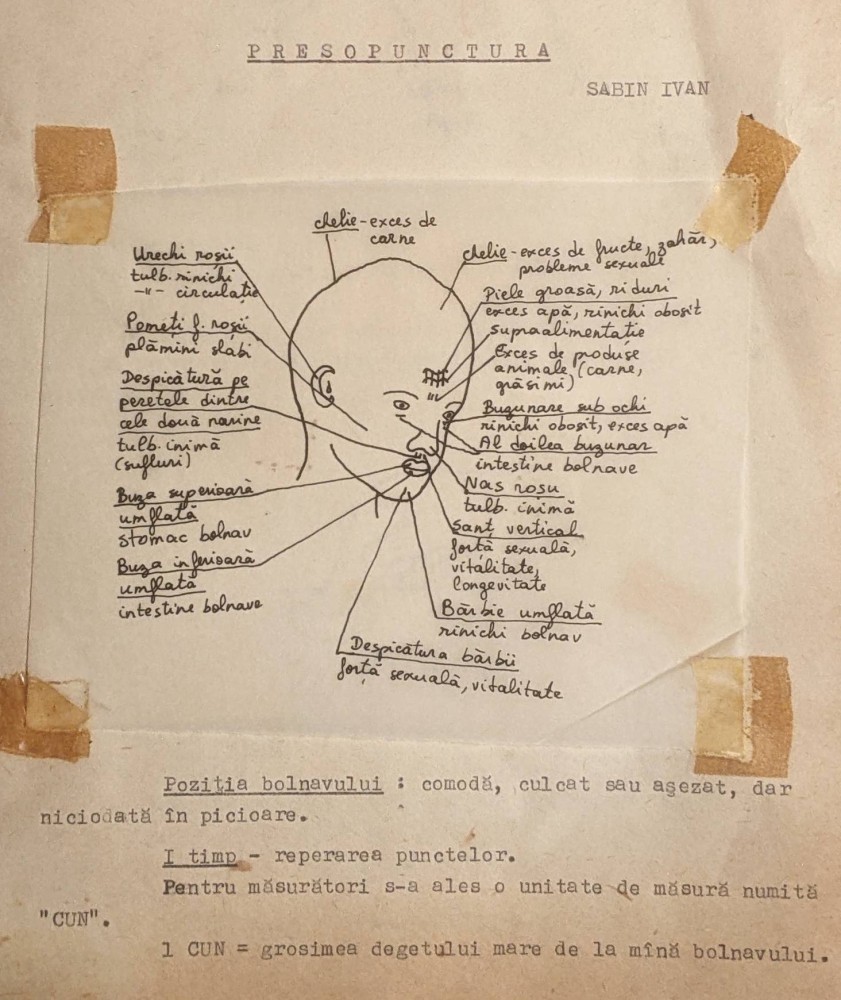 PRESOPUNCTURA
SABIN IVAN
chelie - exces de
carne
Urechi roșii
tulb. rinichi
-"- circulație
Pomeți f. roșii
plămîni slabi
Despicătură pe
peretele dintre
cele două narine
tulb. inimă
(sufluri)
Buza superioară
umflată
stomac bolnav
Buza inferioară
umflată
intestine bolnave
chelie - exces de fructe, zahăr,
probleme sexuale
Piele groasă, riduri
exces apă, rinichi obosit
supraalimentație
Exces de produse
animale (carne,
grăsimi)
Buzunare sub ochi
rinichi obosit, exces apă
Al doilea buzunar
intestine bolnave
Nas roșu
tulb. inimă
Șanț vertical
forță sexuală,
vitalitate,
longevitate
Bărbie umflată
rinichi bolnav
Despicătura bărbii
forță sexuală, vitalitate
Poziția bolnavului : comodă, culcat sau așezat, dar
niciodată în picioare.
I timp - reperarea punctelor.
Pentru măsurători s-a ales o unitate de măsură numită
"CUN".
1 CUN = grosimea degetului mare de la mînă bolnavului.